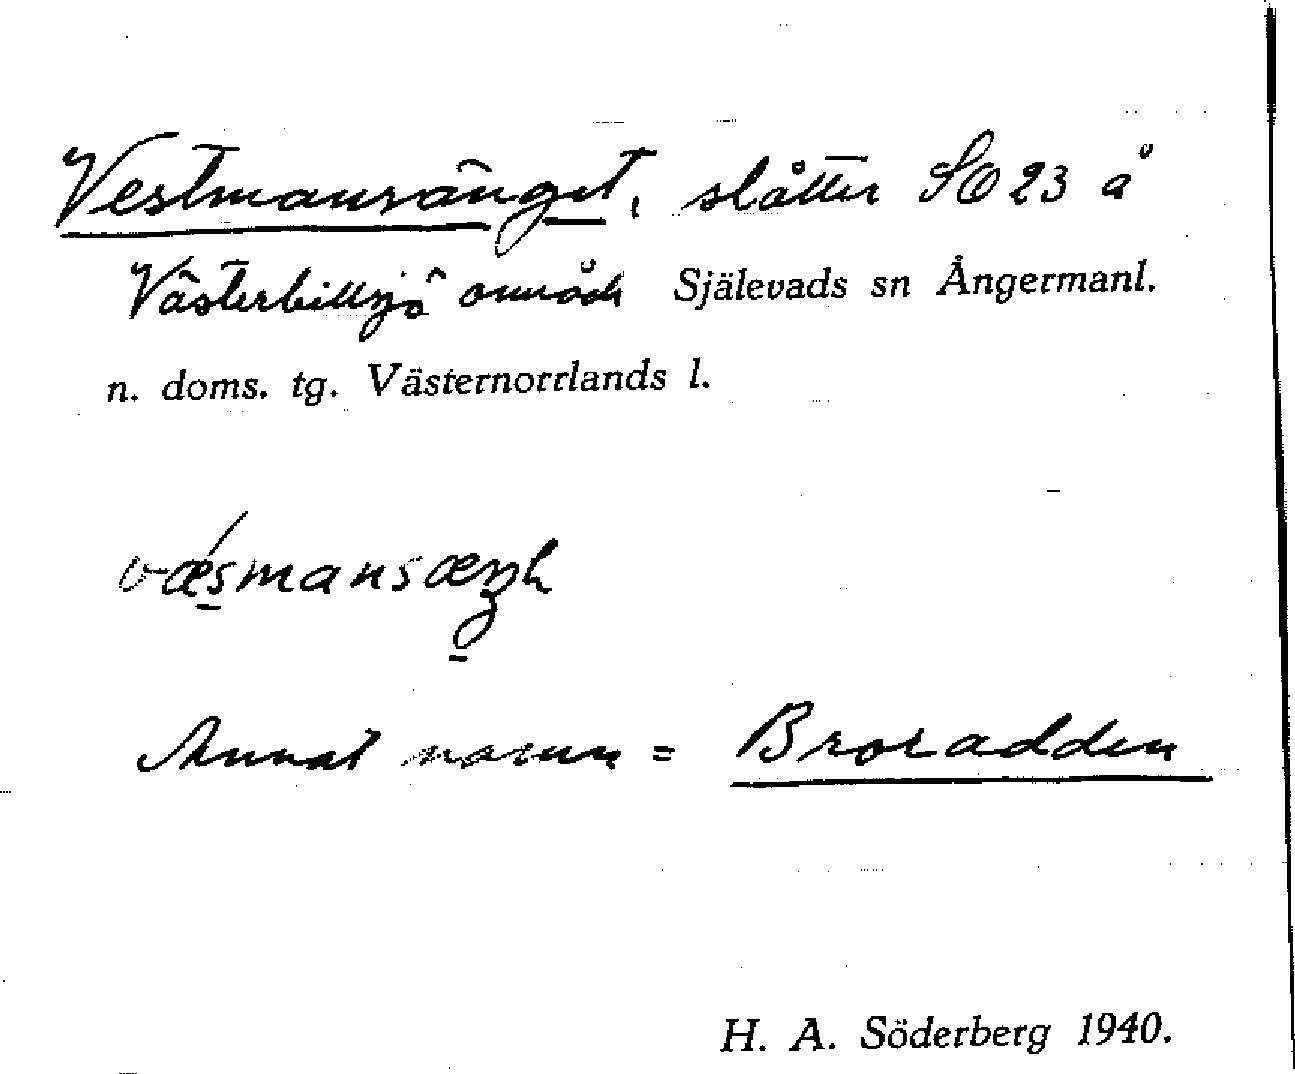 Vestmansänget, slåtter SO 23 å
Västerbillsjö område Själevads sn Ångermanl.
n. doms. tg. Västernorrlands l.
væsmansæŋk
Annat namn = Broradden
H. A. Söderberg 1940.